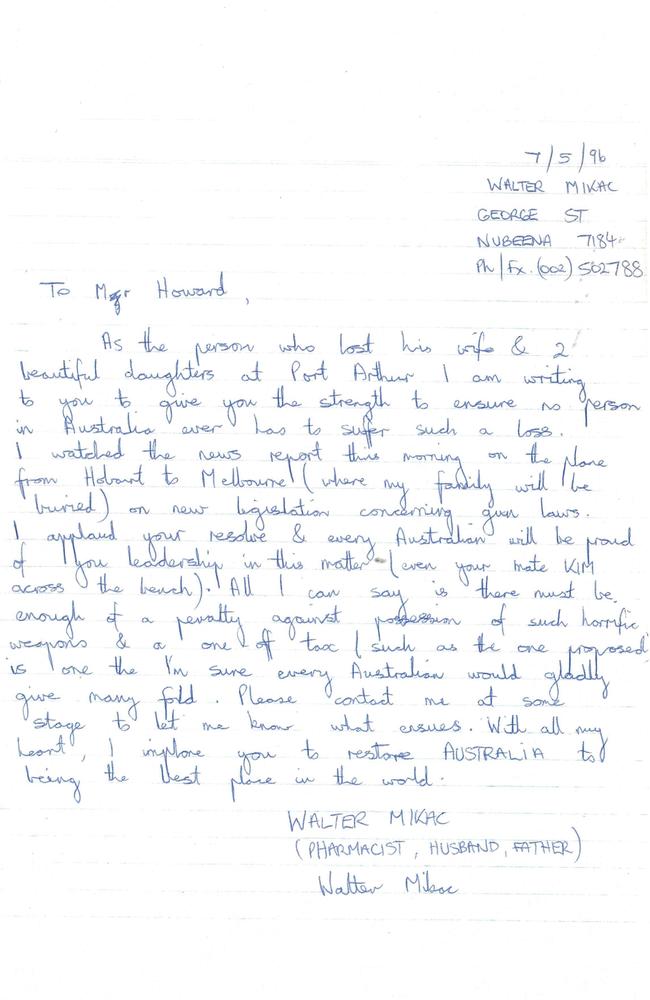 7/5/96
WALTER MIKAC
GEORGE ST
NUBEENA 7184
Ph/Fx. (002) 502788
To Mr Howard,
As the person who lost his wife & 2
beautiful daughters at Port Arthur I am writing
to you to give you the strength to ensure no person
in Australia ever has to suffer such a loss.
I watched the news report this morning on the plane
from Hobart to Melbourne (where my family will be
buried) on new legislation concerning gun laws.
I applaud your resolve & every Australian will be proud
of you leadership in this matter (even your mate KIM
across the bench). All I can say is there must be
enough of a penalty against possession of such horrific
weapons & a one off tax (such as the one proposed
is one the I'm sure every Australian would gladly
give many fold. Please contact me at some
stage to let me know what ensues. With all my
heart, I implore you to restore AUSTRALIA to
being the best place in the world.
WALTER MIKAC
(PHARMACIST, HUSBAND, FATHER)
Walter Mikac